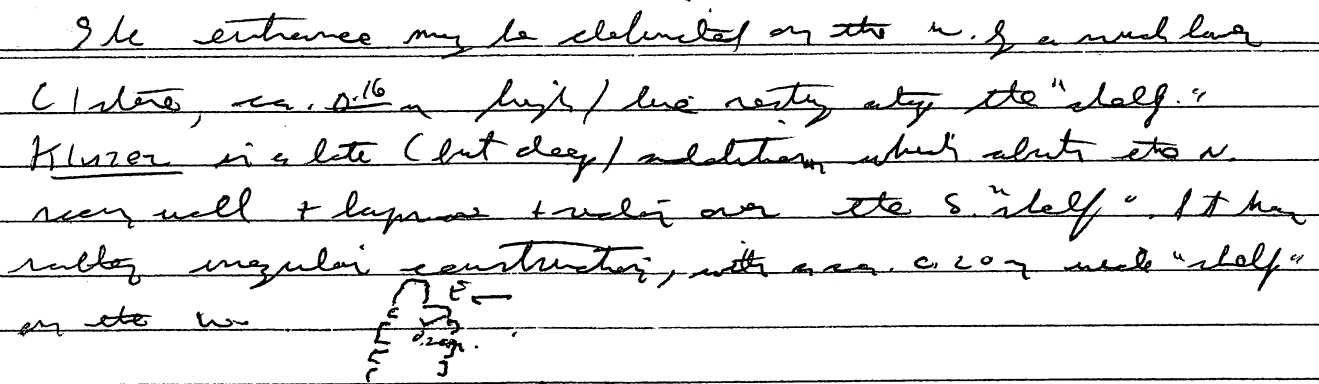 The entrance may be delimited on the N. by a much lower
(1 stone, ca. 0.16 m high) line resting atop the "shelf."
is a late (but deep) addition, which abuts the N.
wall + over the S. "shelf". It has
rubbly irregular construction, with a ca. 0.20 m wide "shelf"
on the W
E
0.20m.